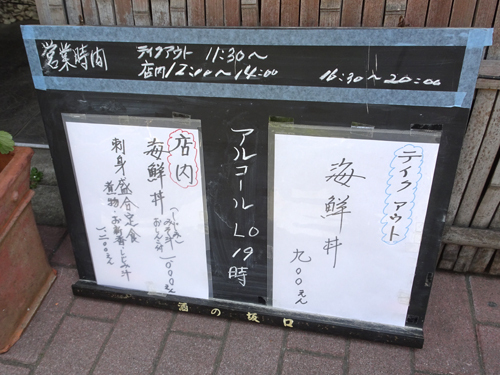 営業時間
テイクアウト 11:30〜
店内 12:00〜14:00 16:30〜20:00
テイクアウト
海鮮丼
九〇〇えん
アルコールLO19時
店内
海鮮丼
一〇〇〇えん
刺身盛合定食
一二〇〇えん
酒の坂口